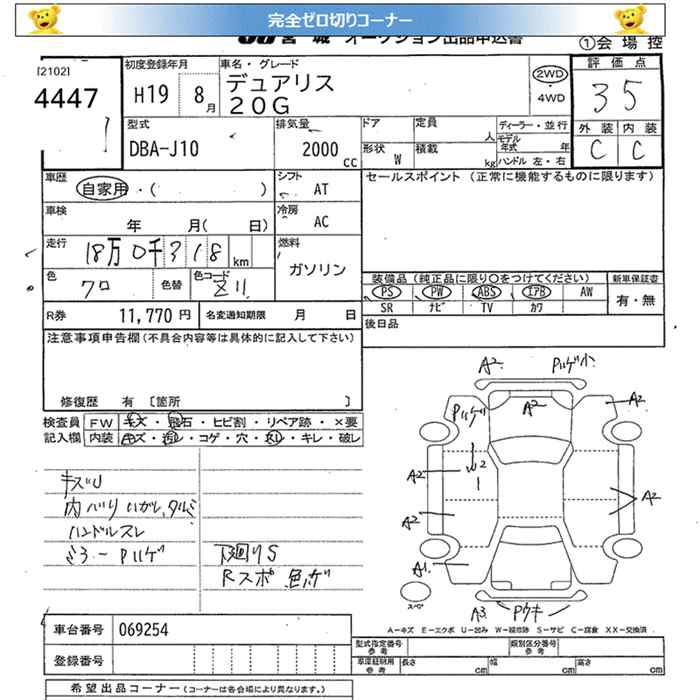 完全ゼロ切りコーナー
JU宮城 オークション出品申込書
①会場控
[2102]
4447
初度登録年月
H19 8月
車名・グレード
デュアリス
20G
2WD
・4WD
評価点
3 5
外装 内装
C C
型式
DBA-J10
排気量
2000 cc
ドア 定員 人
形状 W 積載 kg
ディーラー・並行
モデル年式 年
ハンドル 左・右
車歴
自家用・( )
シフト
AT
セールスポイント (正常に機能するものに限ります)
車検
年 月( 日)
冷房
AC
走行
18万0千318 km
燃料
ガソリン
色
クロ
色替
色コード
Z11
装備品 (純正品に限り○をつけてください)
新車保証書
PS PW ABS エアB AW
有・無
SR ナビ TV カワ
R券 11,770円
名変通知期限 月 日
後日品
注意事項申告欄(不具合内容等は具体的に記入して下さい)
修復歴 有 [箇所 ]
検査員 FW キズ・飛石・ヒビ割・リペア跡・×要
記入欄 内装 キズ・汚レ・コゲ・穴・スレ・キレ・破レ
キズU
ハンドルスレ
下廻りS
A2 Pハゲ小
Pハゲ A2 A2
W2
1
A2 A2
A2
A1
スペア
A3 Pウキ
A-キズ E-エクボ U-凹み W-補修跡 S-サビ C-腐食 XX-交換済
車台番号 069254
登録番号
型式指定番号 参考
類別区分番号 参考
車庫証明用 参考 長さ cm 幅 cm 高さ cm
希望出品コーナー (コーナーは各会場により異なります。)